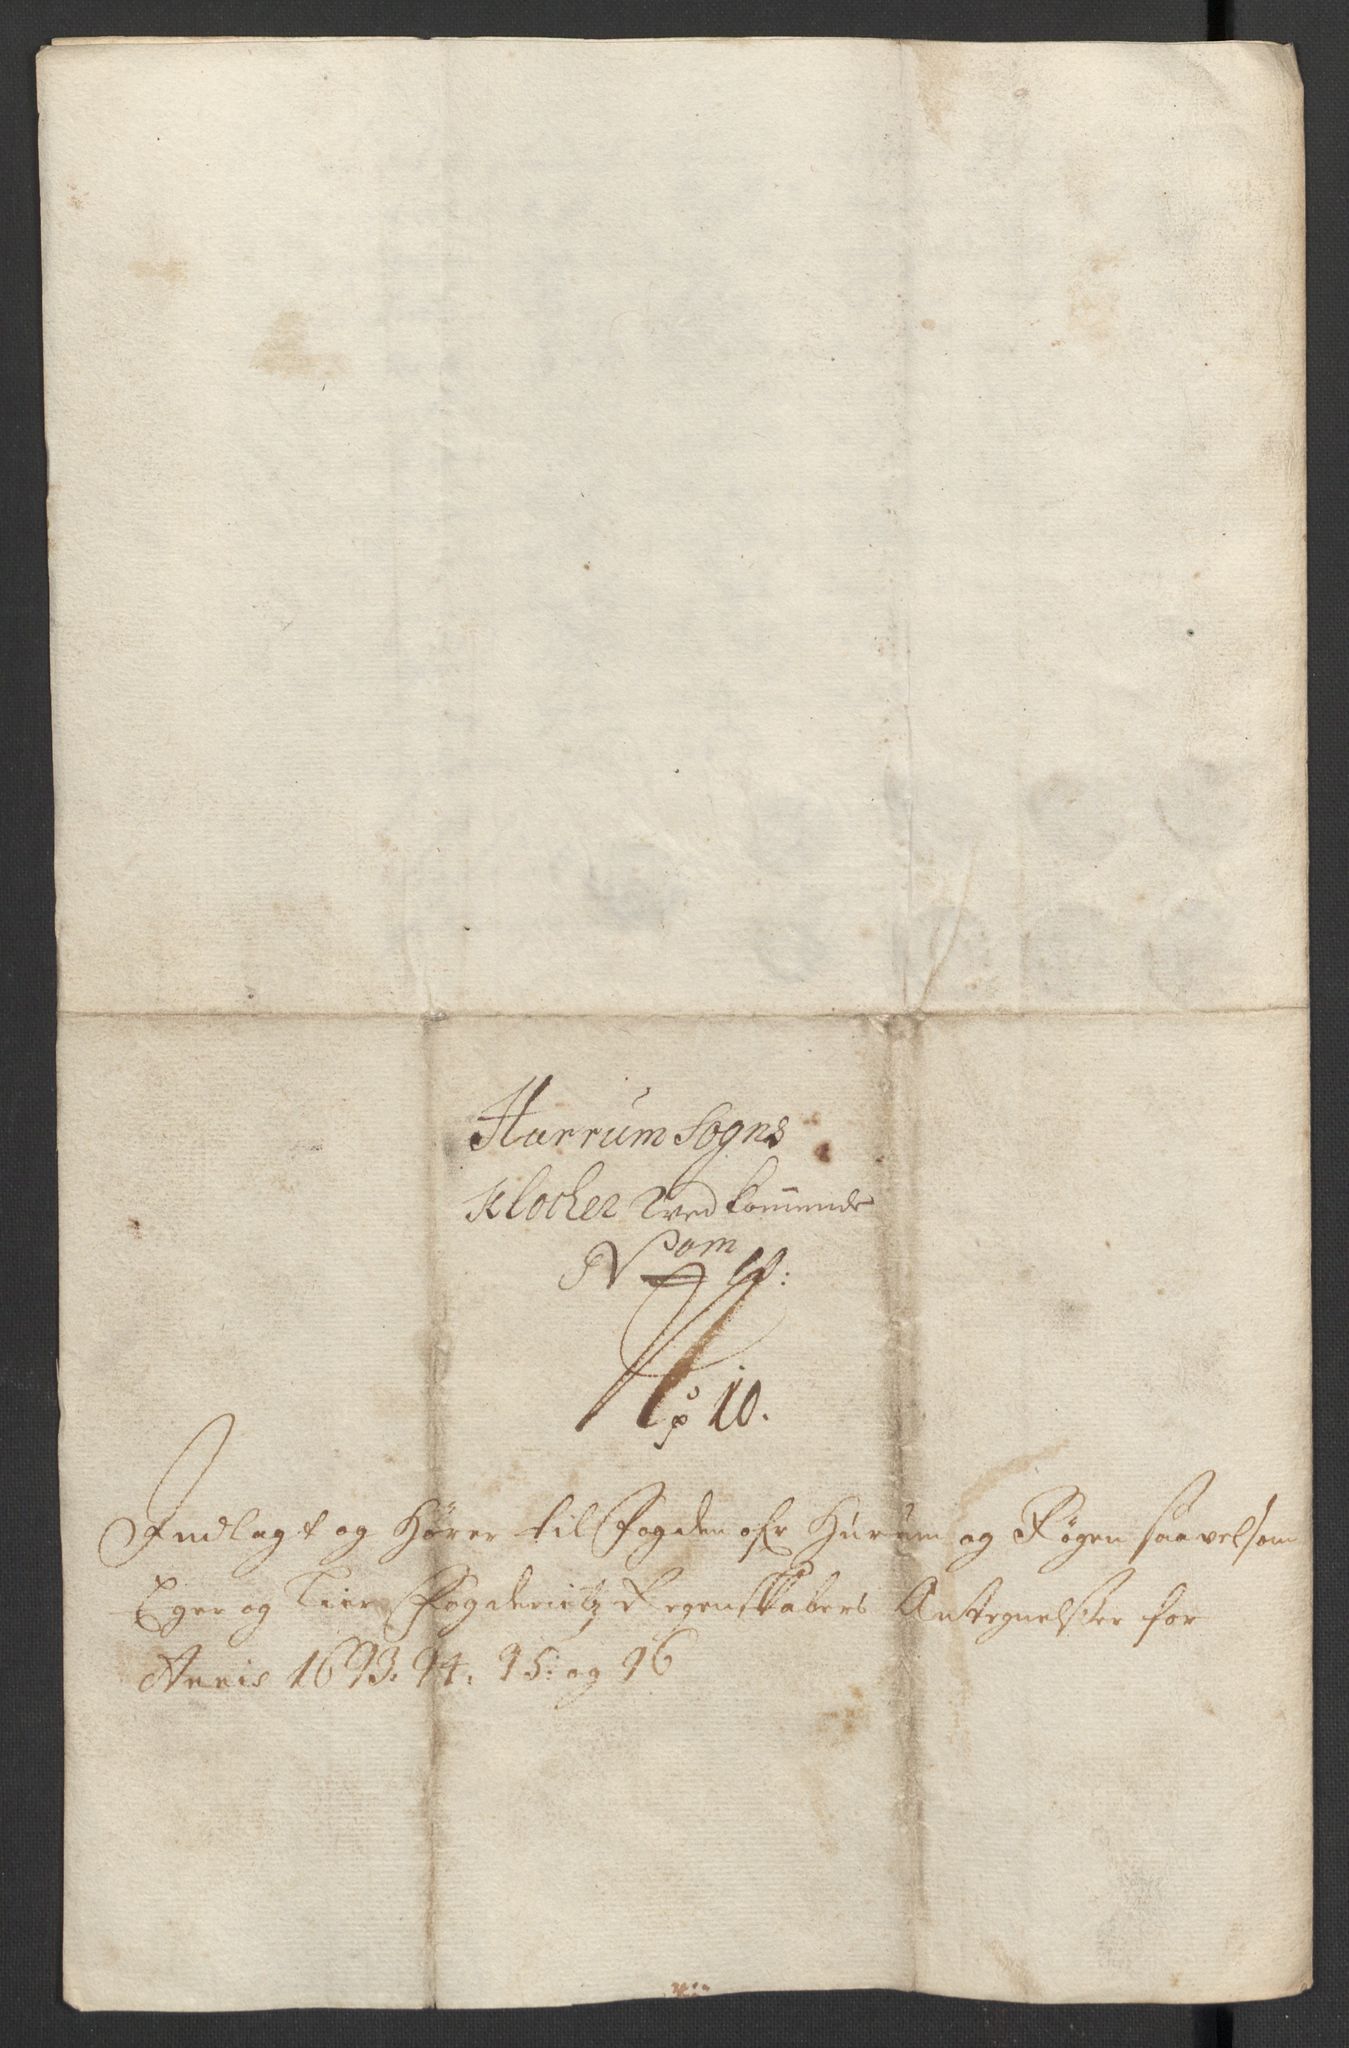 Hurrum Sogns
Klocher Vedkommende
No
p 10.
Indlagt og Hører til Fogden ofr Hurum og Røgen saavelsom
Eger og Lier Fogderietz Regenskabers Antegnelsser for
Annis 1693. 94. 95: og 96